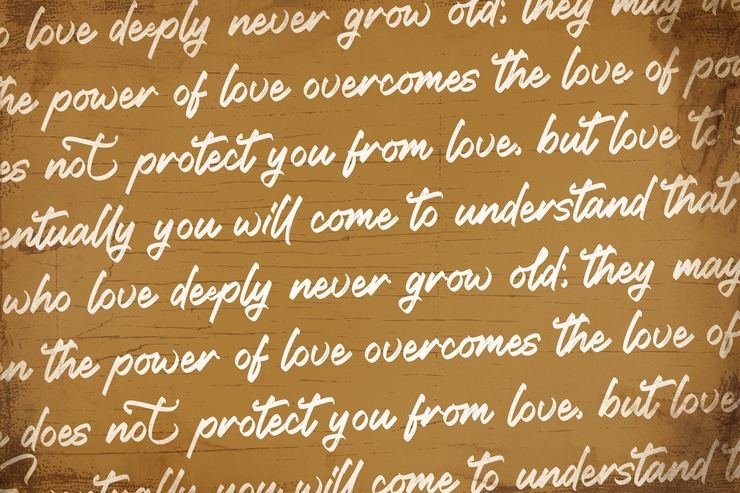 o love deeply never grow old: they may di
the power of love overcomes the love of pow
es not protect you from love. but love to s
entually you will come to understand that
who love deeply never grow old: they may
n the power of love overcomes the love of
does not protect you from love. but love
entually you will come to understand t